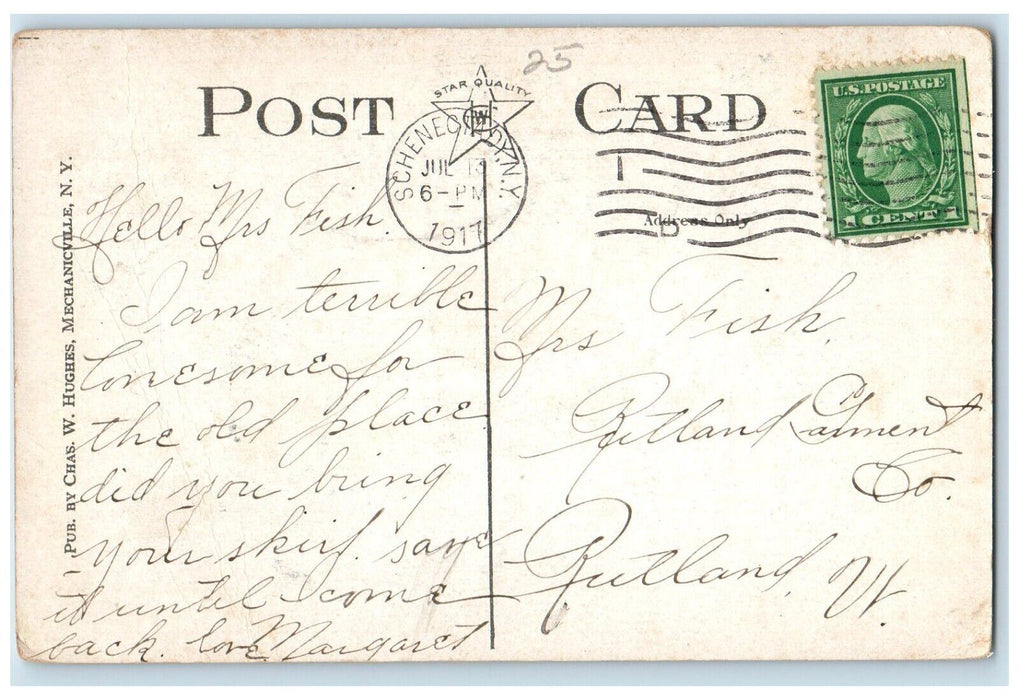 25
STAR QUALITY
W
POST CARD
U.S. POSTAGE
1 CENT 1
SCHENECTADY, N.Y.
JUL 13
6-PM
1917
Address Only
PUB. BY CHAS. W. HUGHES, MECHANICVILLE, N. Y.
Hello Mrs Fish.
I am terrible
lonesome for
the old place
did you bring
your skirt. save
it until I come
back. love Margaret
Mrs Fish,
Rutland Garment
Co.
Rutland, Vt.